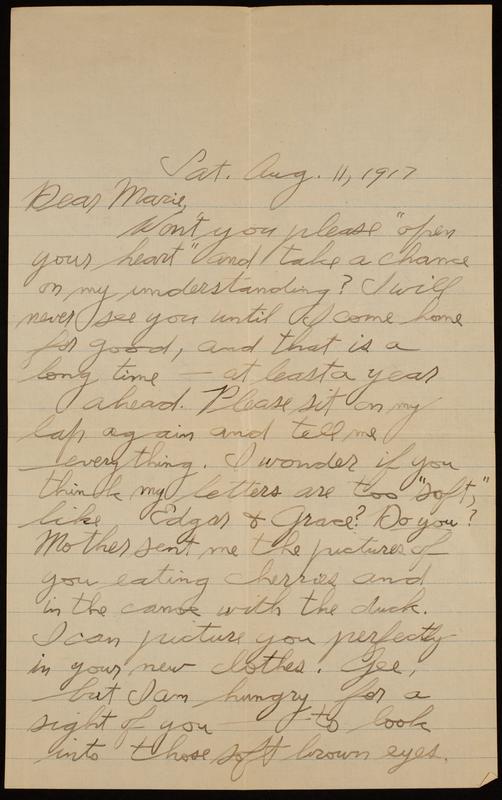 Sat. Aug. 11, 1917
Dear Marie,
Won't you please "open
your heart" and take a chance
on my understanding? I will
never see you until I come home
for good, and that is a
long time — at least a year
ahead. Please sit on my
lap again and tell me
everything. I wonder if you
think my letters are too "soft,"
like Edgar & Grace? Do you?
Mother sent me the pictures of
you eating cherries and
in the canoe with the duck.
I can picture you perfectly
in your new clothes. Gee,
but I am hungry for a
sight of you — to look
into those soft brown eyes.